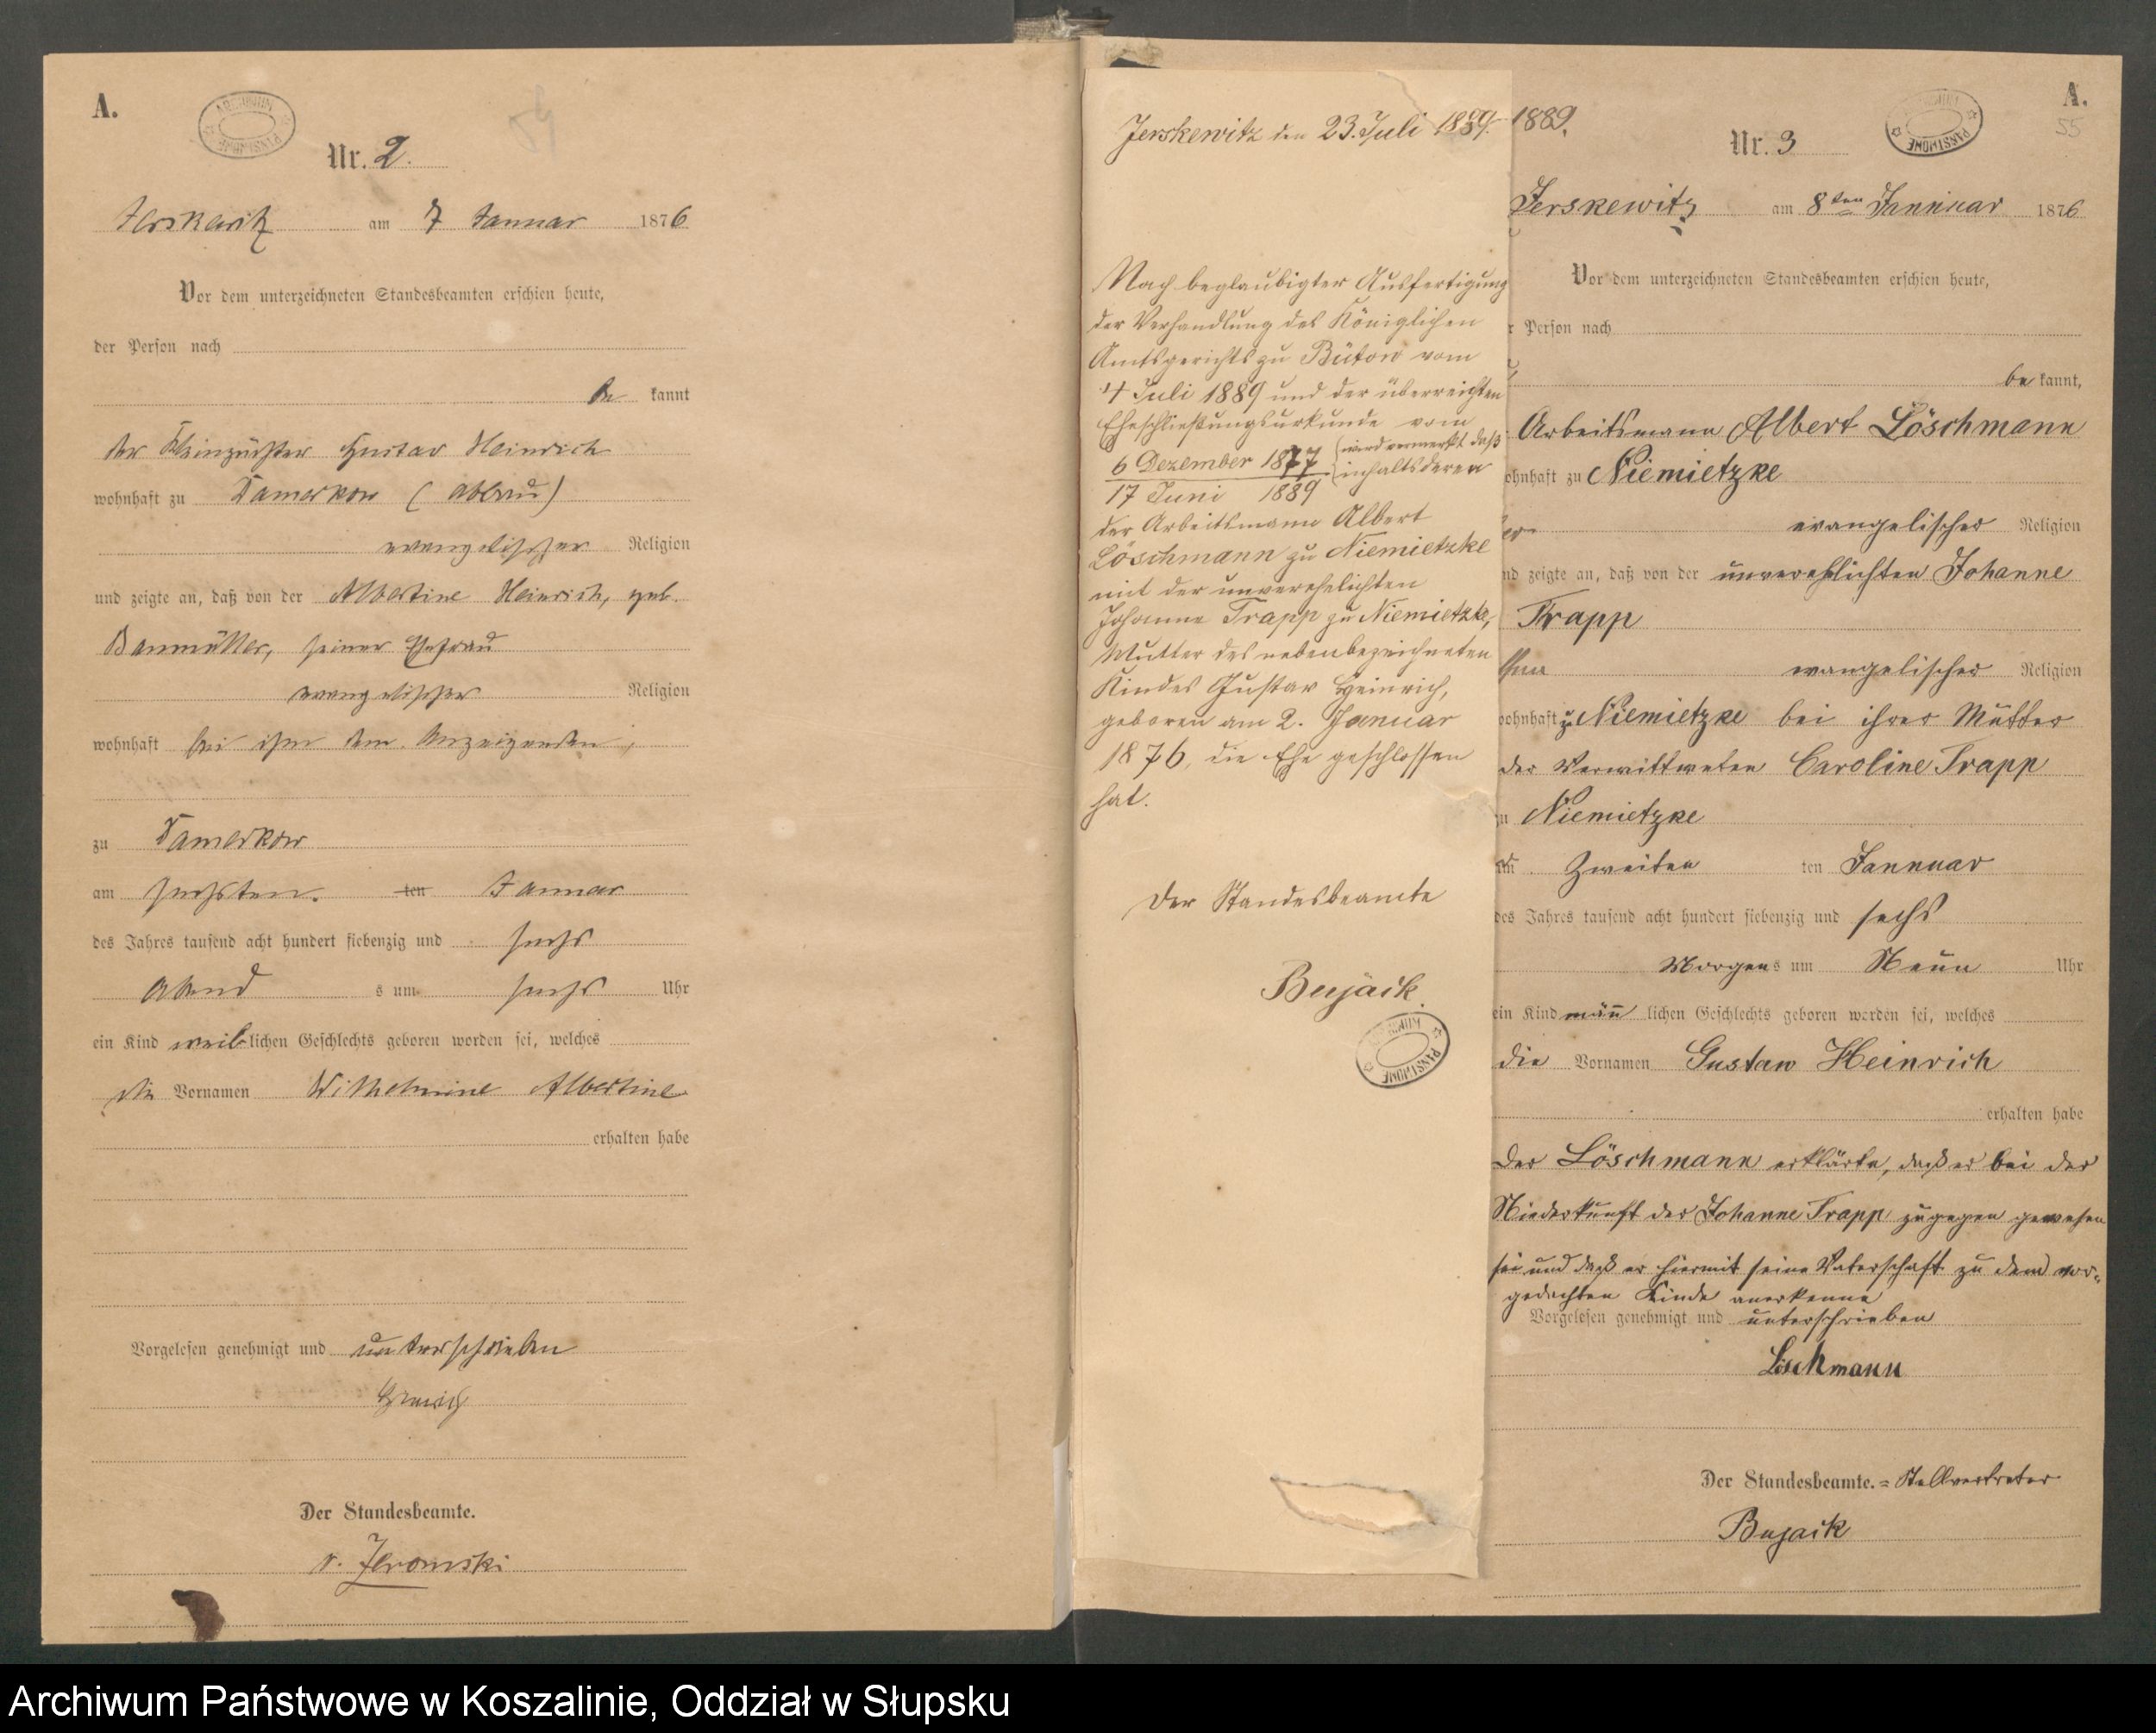 A.
ARCHIWUM PAŃSTWOWE
Nr. 2.
Jerskewitz am 7 Januar 1876
Vor dem unterzeichneten Standesbeamten erschien heute,
der Person nach
be kannt
der Gustav Heinrich
wohnhaft zu Damerkow (Abbau)
evangelischer Religion
und zeigte an, daß von der Albertine Heinrich, geb.
seiner Ehefrau
evangelischer Religion
wohnhaft bei ihm dem Anzeigenden,
zu Damerkow
am sechsten. ten Januar
des Jahres tausend acht hundert siebenzig und sechs
Abend s um sechs Uhr
ein Kind weib lichen Geschlechts geboren worden sei, welches
die Vornamen Wilhelmine Albertine
erhalten habe
Vorgelesen genehmigt und unterschrieben
Der Standesbeamte.
v. Jeromski
Jerskewitz den 23. Juli 1889.
Nach beglaubigter Ausfertigung
der Verhandlung des Königlichen
Amtsgerichts zu Bütow vom
4 Juli 1889 und der überreichten
Eheschließungsurkunde vom
6 Dezember 1877 (wird vermerkt daß
17 Juni 1889 inhalts deren
der Arbeitsmann Albert
Löschmann zu Niemietzke
mit der unverehelichten
Johanne Trapp zu Niemietzke,
Mutter des nebenbezeichneten
Kindes Gustav Heinrich,
geboren am 2. Januar
1876, die Ehe geschlossen
hat.
Der Standesbeamte
Bujack
ARCHIWUM PAŃSTWOWE
1889.
A.
55
ARCHIWUM PAŃSTWOWE
Nr. 3
Jerskewitz am 8ten Januar 1876
Vor dem unterzeichneten Standesbeamten erschien heute,
r Person nach
be kannt,
Arbeitsmann Albert Löschmann
ohnhaft zu Niemietzke
evangelischer Religion
nd zeigte an, daß von der unverehlichten Johanne
Trapp
evangelischer Religion
wohnhaft zu Niemietzke bei ihrer Mutter
der Verwittweten Caroline Trapp
zu Niemietzke
am Zweiten ten Jannuar
des Jahres tausend acht hundert siebenzig und sechs
Morgens um Neun Uhr
ein Kind männ lichen Geschlechts geboren worden sei, welches
die Vornamen Gustaw Heinrich
erhalten habe
Der Löschmann erklärte, daß er bei der
Niederkunft der Johanne Trapp zugegen gewesen
sei und daß er hiermit seine Vaterschaft zu dem vor-
gedachten Kinde anerkenne
Vorgelesen genehmigt und unterschrieben
Löschmann
Der Standesbeamte. = Stellvertreter
Bujack
Archiwum Państwowe w Koszalinie, Oddział w Słupsku